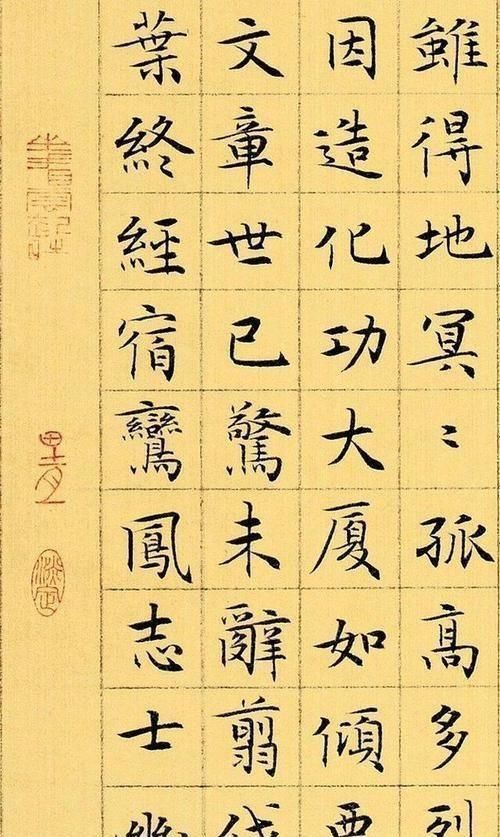 雖得地冥〻孤高多烈
因造化功大厦如傾要
文章世已驚未辭剪伐
葉終經宿鸞鳳志士